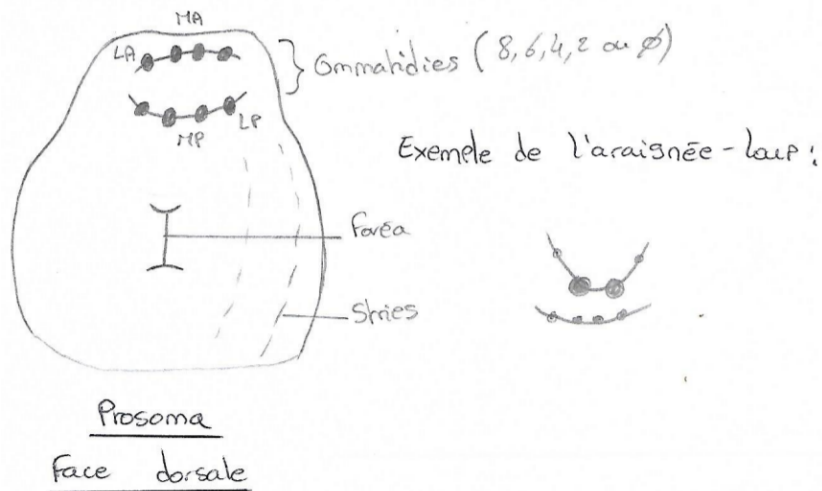 MA
LA
Ommatidies (8, 6, 4, 2 ou ∅)
LP
MP
Exemple de l'araignée-loup :
Fovéa
Stries
Prosoma
Face dorsale